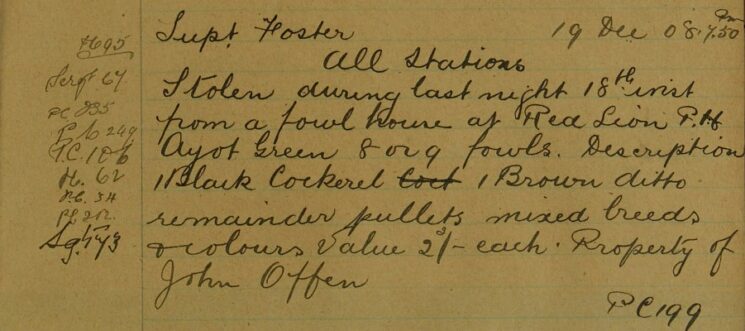 Supt Foster 19 Dec 08. 7.50 pm
All Stations
Stolen during last night 18th inst
from a fowl house at Red Lion P.H
Ayot Green 8 or 9 fowls. Description
1 Black Cockerel Coct 1 Brown ditto
remainder pullets mixed breeds
& colours Value 2/- each. Property of
John Offen
PC 199
H 95
Sergt 67
PC 235
P.C 249
P.C. 106
H. 62
P.C. 34
PC 202.
Sgt 73